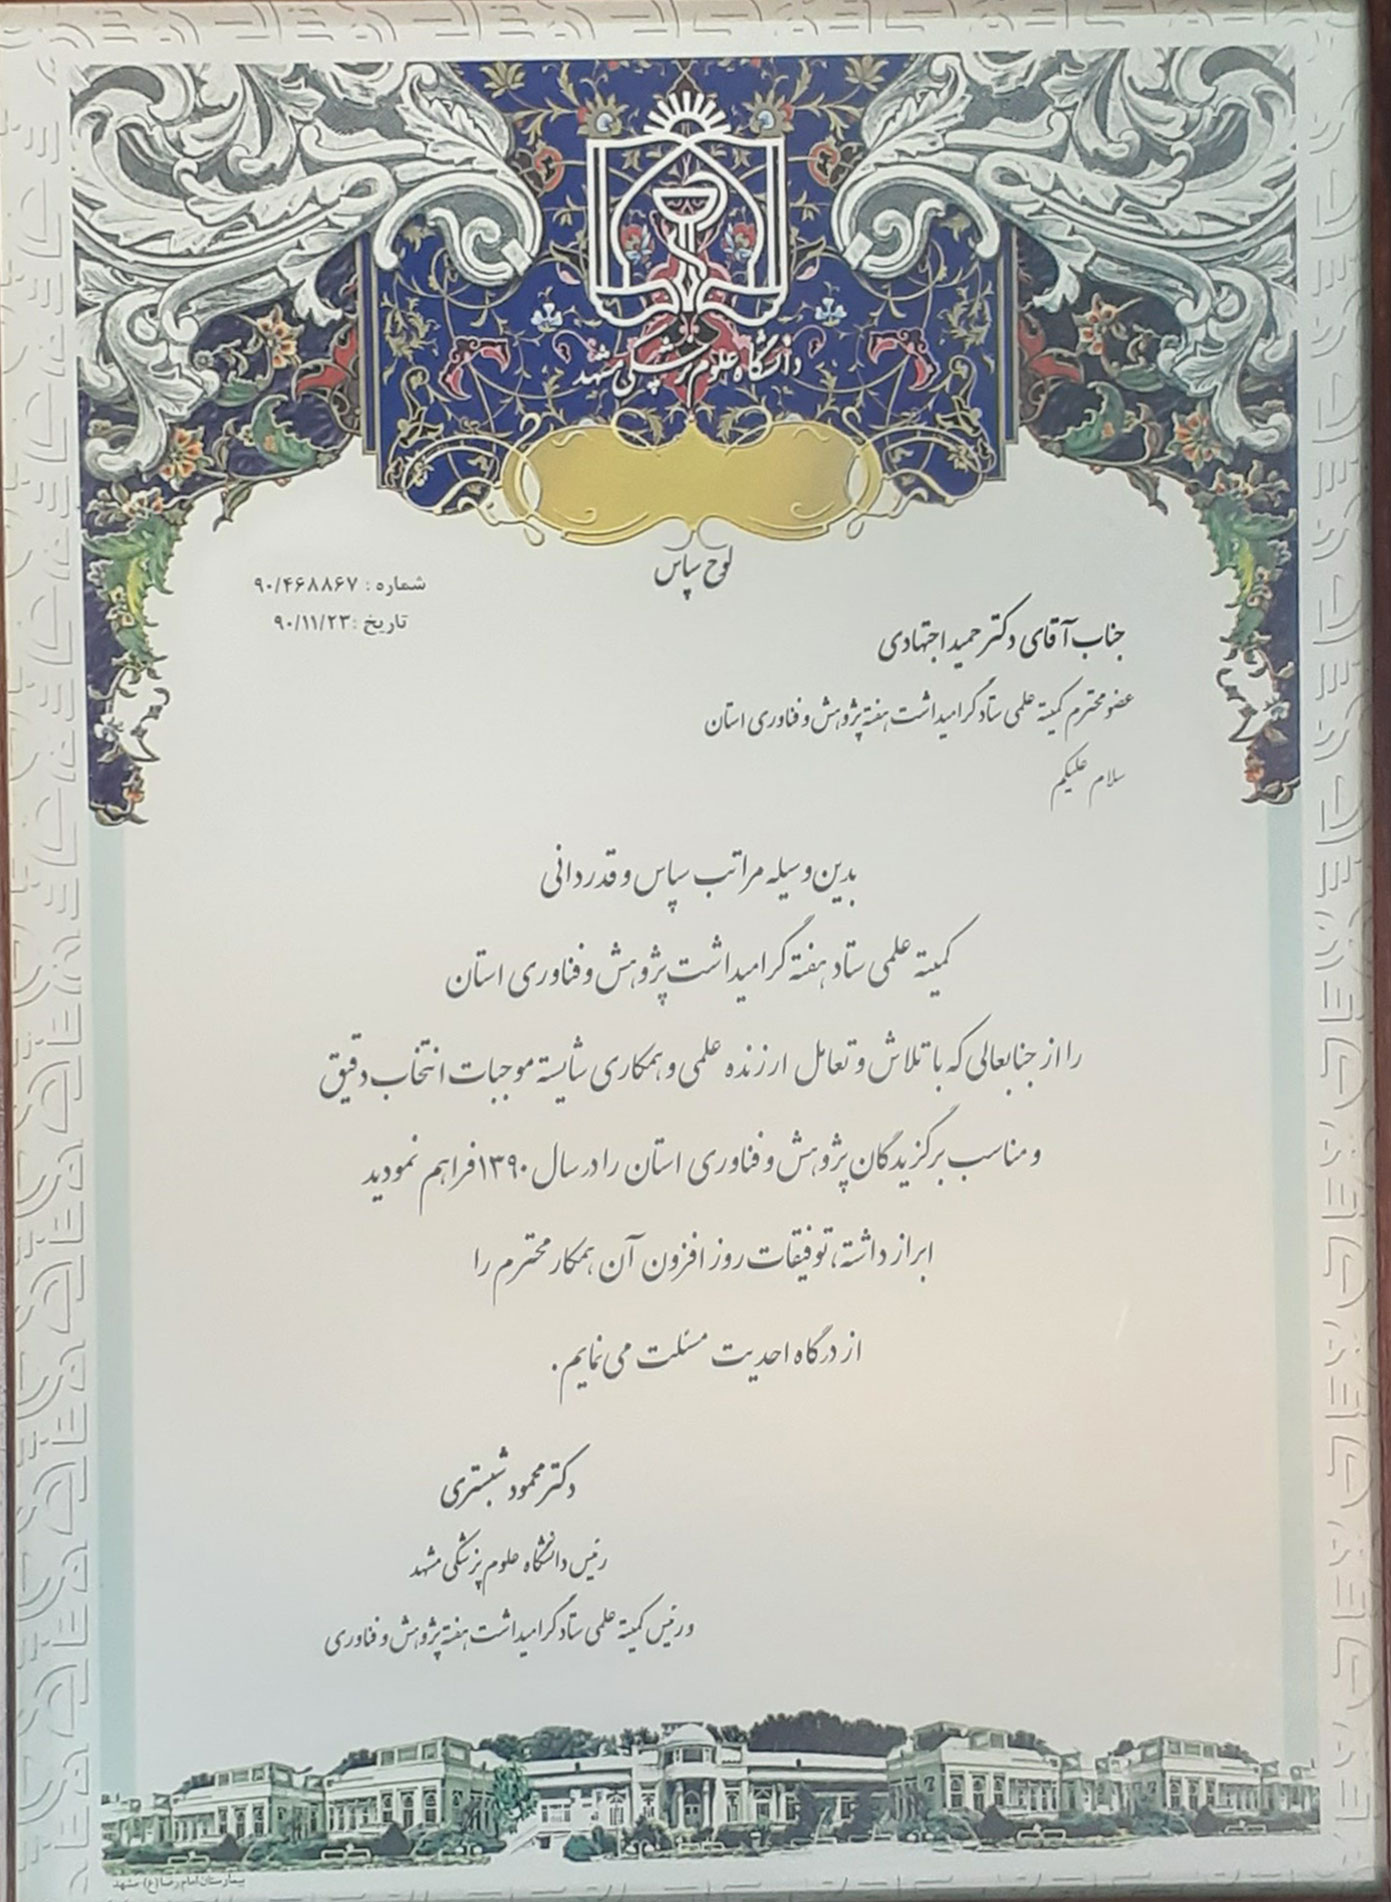 دانشگاه علوم پزشکی مشهد
لوح سپاس
شماره : ۹۰/۴۶۸۸۶۷
تاریخ :۹۰/۱۱/۲۳
جناب آقای دکتر حمید اجتهادی
عضو محترم کمیته علمی ستاد گرامیداشت هفته پژوهش و فناوری استان
سلام علیکم
بدین وسیله مراتب سپاس و قدردانی
کمیته علمی ستاد هفته گرامیداشت پژوهش و فناوری استان
را از جنابعالی که با تلاش و تعامل ارزنده علمی و همکاری شایسته موجبات انتخاب دقیق
و مناسب برگزیدگان پژوهش و فناوری استان را در سال ۱۳۹۰ فراهم نمودید
ابراز داشته، توفیقات روز افزون آن همکار محترم را
از درگاه احدیت مسئلت می نمایم.
دکتر محمود شبستری
رئیس دانشگاه علوم پزشکی مشهد
و رئیس کمیته علمی ستاد گرامیداشت هفته پژوهش و فناوری
بیمارستان امام رضا (ع) مشهد